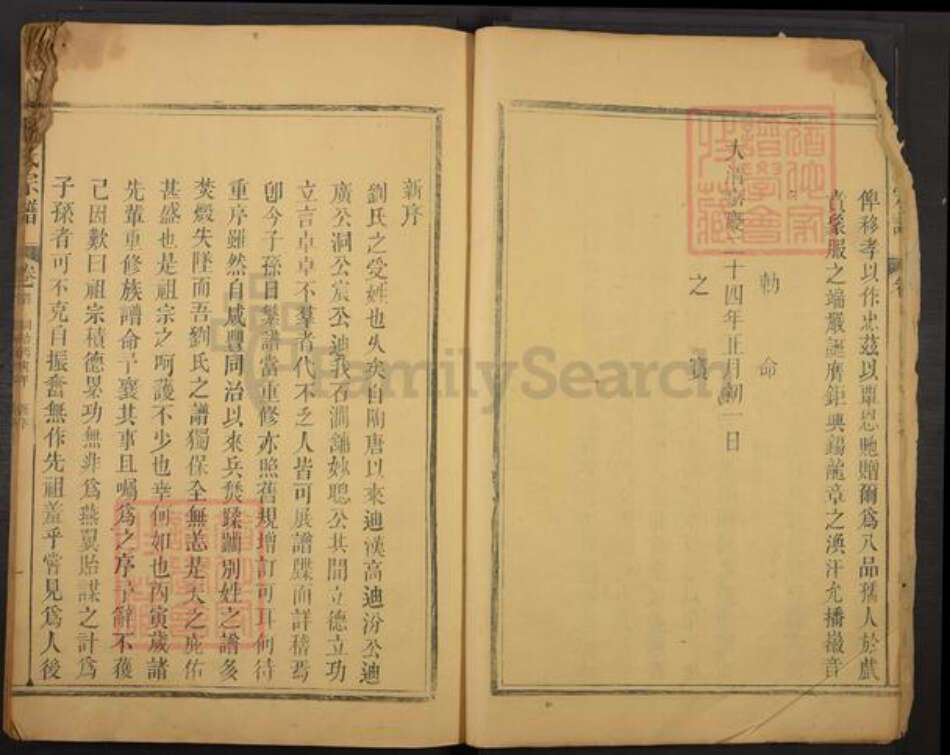 俾移孝以作忠茲以覃恩貤贈爾為八品孺人於戲
賁褧服之端嚴誕膺鉅典錫龍章之渙汗允播徽音
勅命
大清嘉慶二十四年正月初一日
之寶
新序
劉氏之受姓也久矣自陶唐以來迪漢高迪汾公迪
廣公洞公宸公迪我石澗鋪妙聰公其間立德立功
立言卓卓不羣者代不乏人皆可展譜牒而詳稽焉
卽今子孫日繁譜當重修亦照舊規增訂可耳何待
重序雖然自咸豐同治以來兵燹蹂躪別姓之譜多
焚燬失墜而吾劉氏之譜獨保全無恙是天之庇佑
甚盛也是祖宗之呵護不少也幸何如也丙寅歲諸
先輩重修族譜命予襄其事且囑爲之序予辭不獲
己因歎曰祖宗積德累功無非爲燕翼貽謀之計爲
子孫者可不克自振奮無作先祖羞乎嘗見爲人後
氏宗譜
卷
FamilySearch